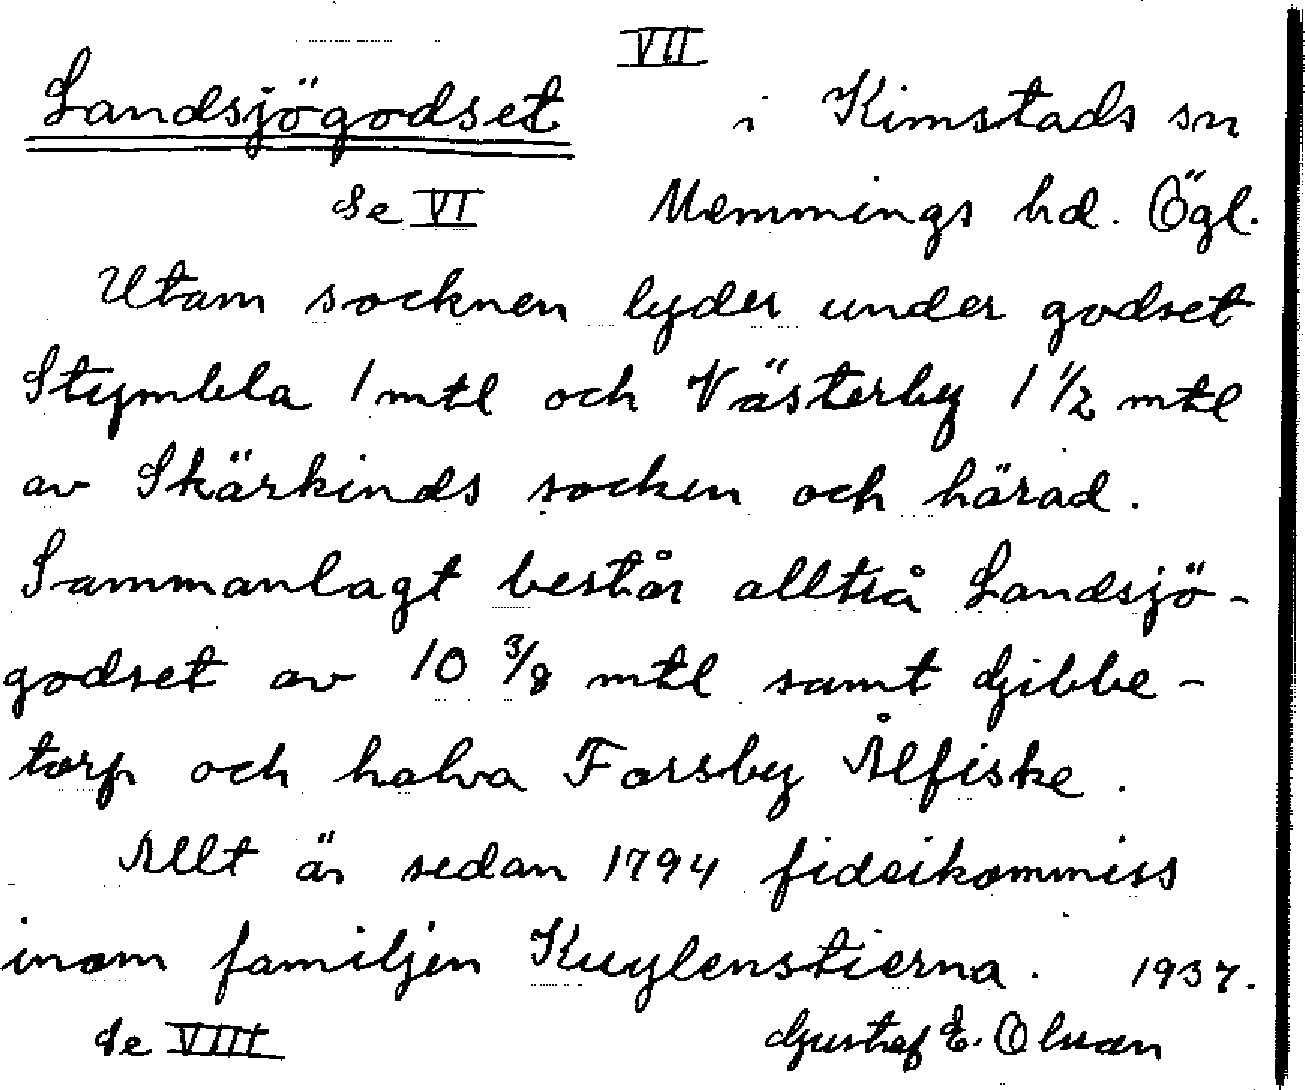 VII
Landsjögodset i Kimstads sn
Se VI Memmings hd. Ögl.
Utom socknen lyder under godset
Stymbla 1 mtl och Västerby 1 1/2 mtl
av Skärkinds socken och härad.
Sammanlagt består alltså Landsjö-
godset av 10 3/8 mtl samt Gibbe-
torp och halva Forsby Ålfiske.
Allt är sedan 1794 fideikommiss
inom familjen Kuylenstierna. 1937.
Se VIII Gustaf E. Olsson